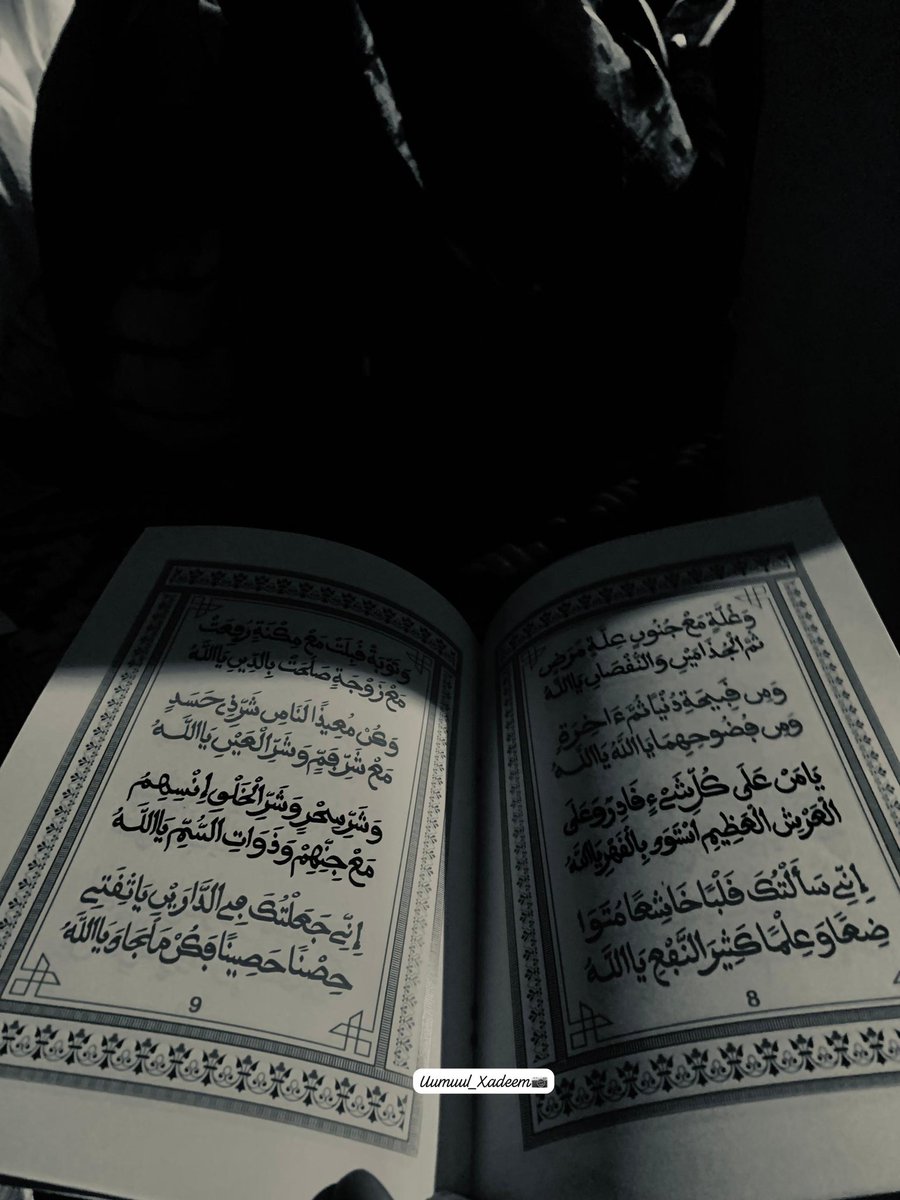 وَعُلَةٍ مَعْ جُنُوبٍ عِلَّةٍ مَرَضٍ
ثُمَّ الْجُذَامَيْنِ وَالنُّقْصَانِ يَا اللَّهُ
وَمِن فَضِيحَةِ دُنْيَا ثُمَّ ءَاخِرَةٍ
وَمِن فُضُوحِهِمَا يَا اللَّهُ يَا اللَّهُ
يَا مَن عَلَى كُلِّ شَيْءٍ قَادِرٌ وَعَلَى
الْعَرْشِ الْعَظِيمِ اسْتَوَى بِالْقَهْرِ يَا اللَّهُ
إِنِّي سَأَلْتُكَ قَلْبًا خَاشِعًا مُتَوَا
ضِعًا وَعِلْمًا كَثِيرَ النَّفْعِ يَا اللَّهُ
8
وَتَوْبَةً قُبِلَتْ مَعْ مِكْنَةٍ رَفِعَتْ
مَعْ زَوْجَةٍ صَلَحَتْ بِالدِّينِ يَا اللَّهُ
وَكُن مُعِيذًا لَنَا مِن شَرِّ ذِي حَسَدٍ
مَعْ شَرِّ فَمٍّ وَشَرِّ الْعَيْنِ يَا اللَّهُ
وَشَرِّ سِحْرٍ وَشَرِّ الْخَلْقِ إِنْسِهِمُ
مَعْ جِنِّهِمْ وَذَوَاتِ السُّمِّ يَا اللَّهُ
إِنِّي جَعَلْتُكَ فِي الدَّارَيْنِ يَا ثِقَتِي
حِصْنًا حَصِينًا فَكُنْ مَلْجَا وَيَا اللَّهُ
9
Uumuul_Xadeem📷